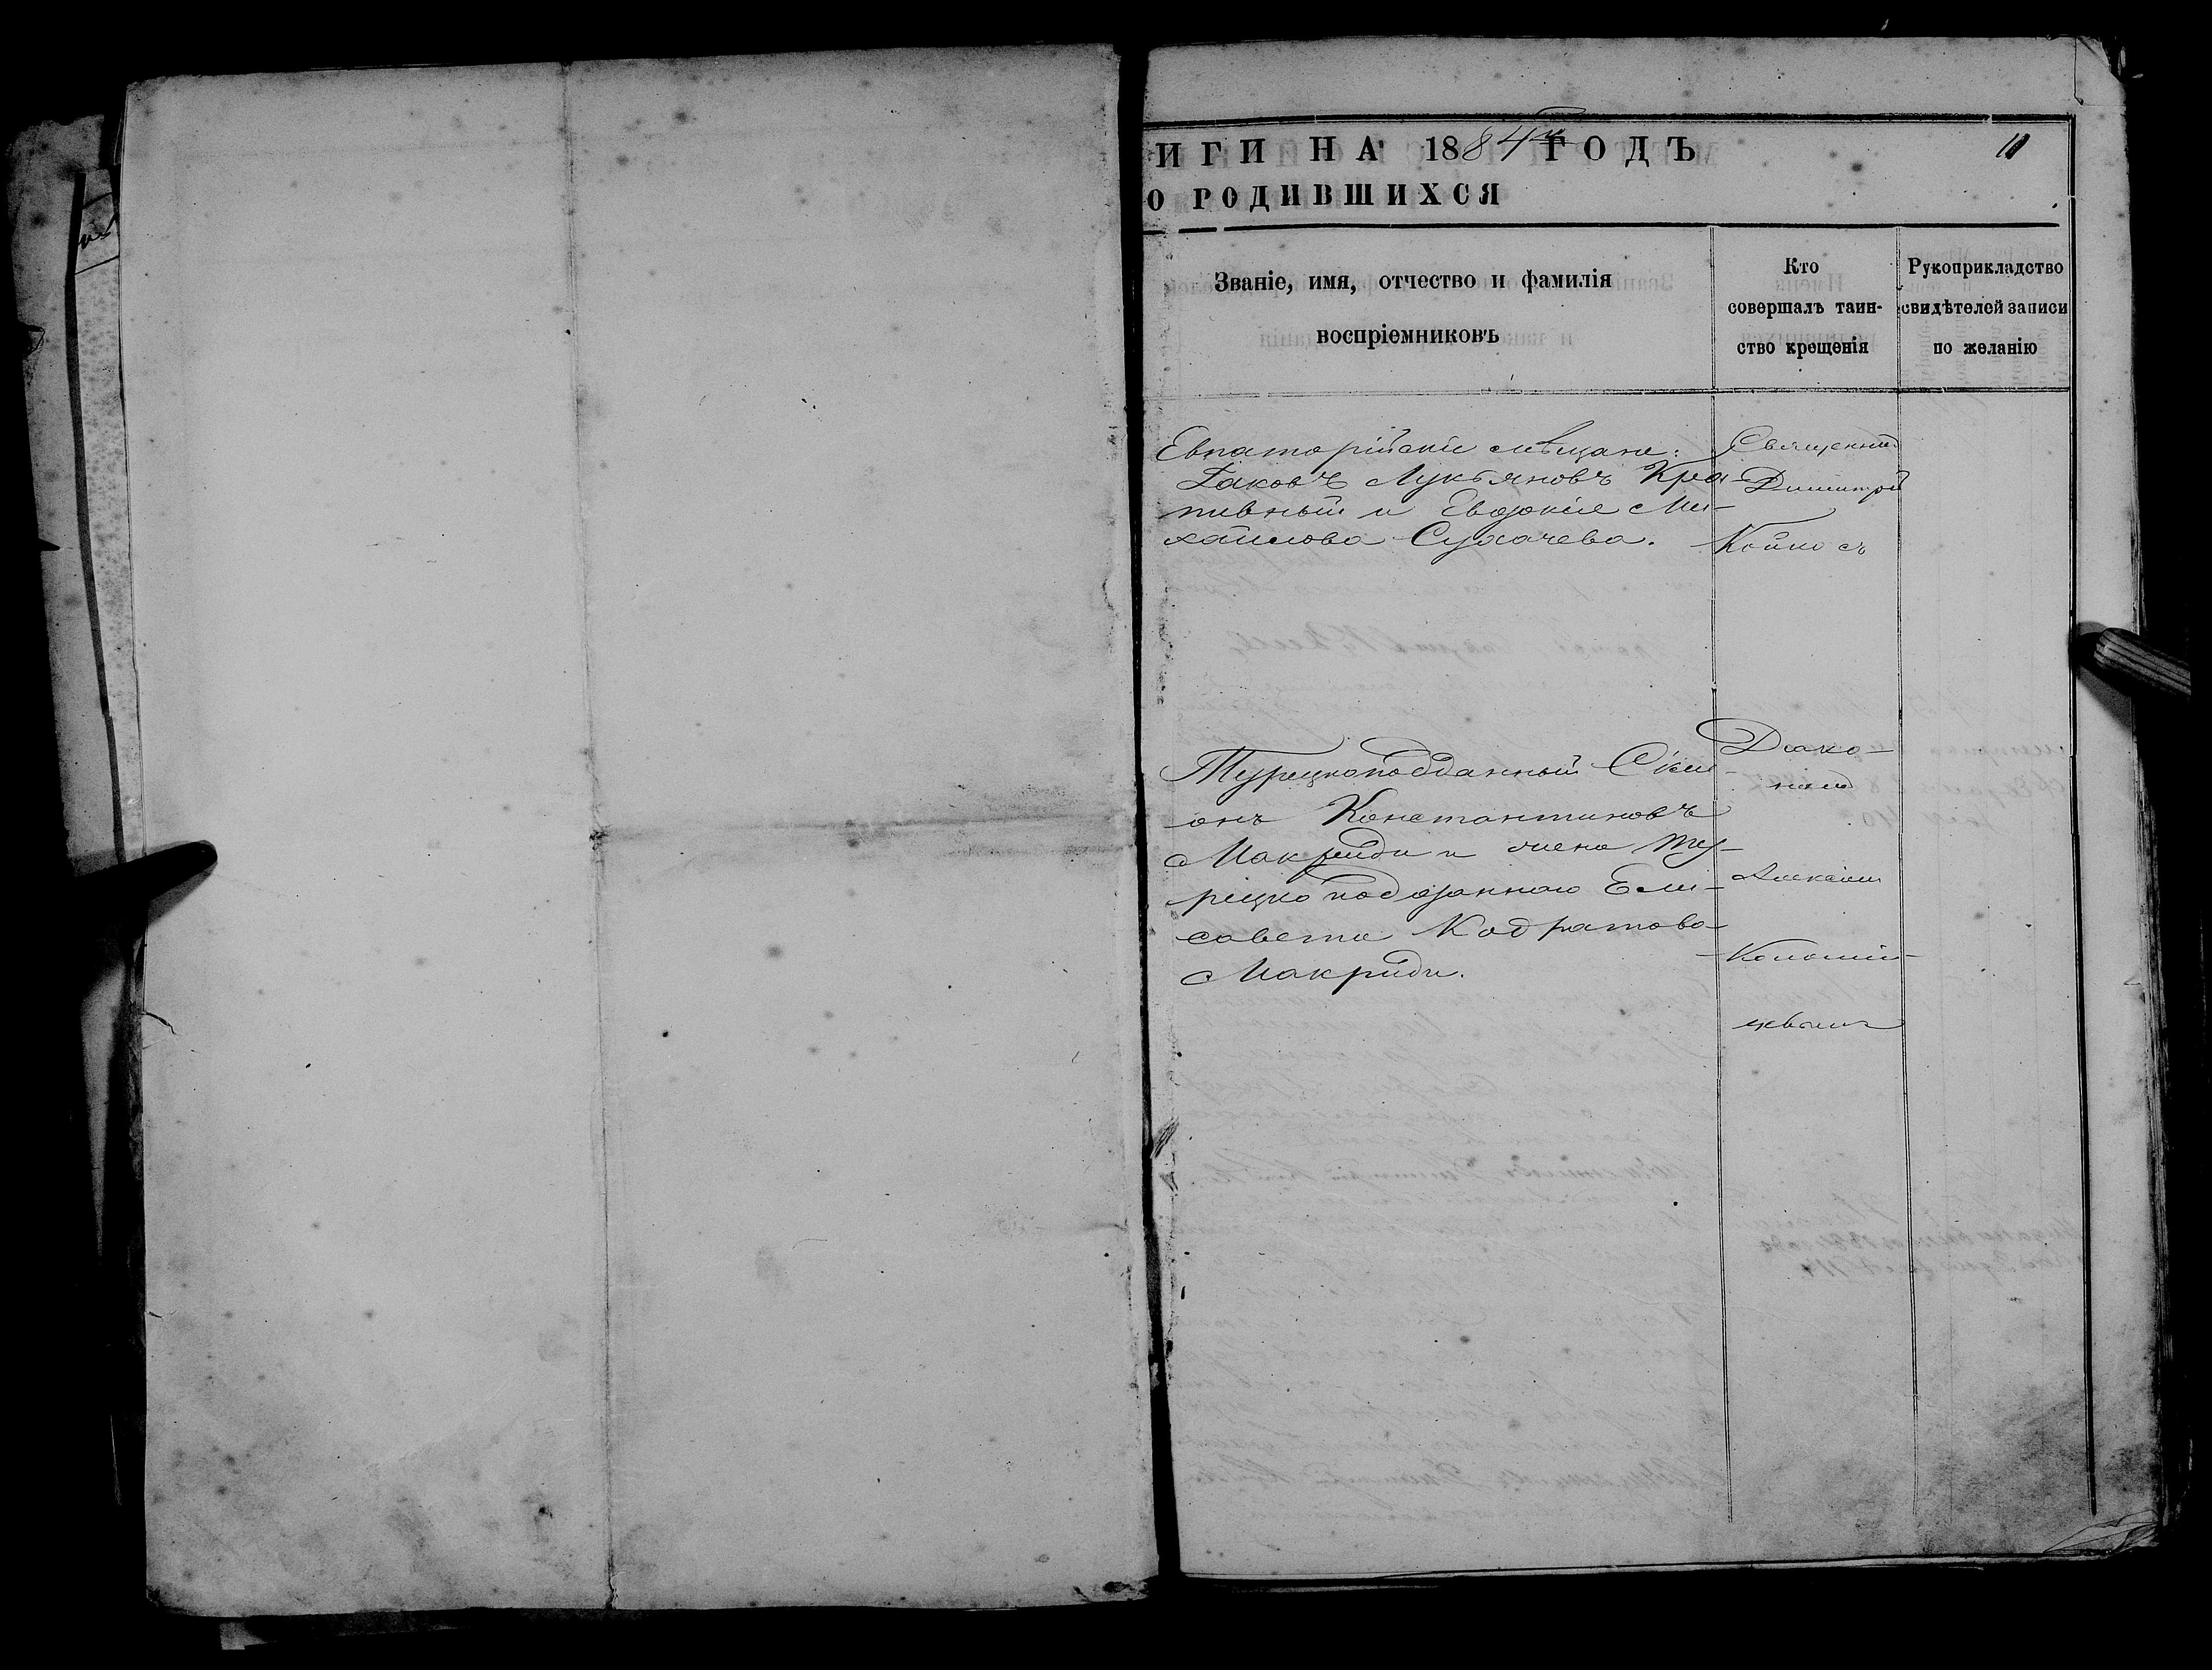 ИГИ НА 1884й ГОДЪ
11
О РОДИВШИХСЯ
Званіе, имя, отчество и фамилія
воспріемниковъ
Кто
совершалъ таин-
ство крещенія
Рукоприкладство
свидѣтелей записи
по желанію
Евпаторійскіе мѣщане:
Іаковъ Лукьяновъ Кра-
пивный и Евдокія Ми-
хайлова Сухачева.
Священник
Димитрій
Койко съ
Турецкоподданный
Константиновъ
Макриди и жена ту-
рецко подданнаго Ели-
савета Кодратова
Макриди.
Діако-
номъ
Алексіем